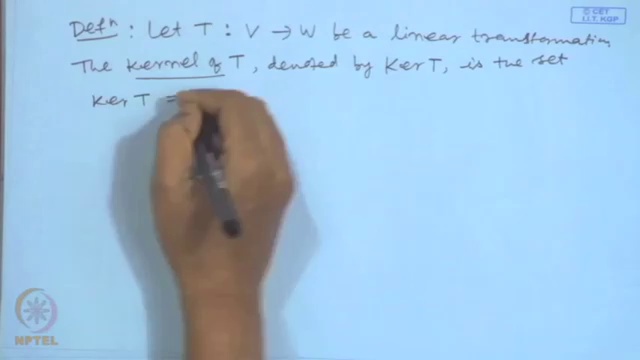 © CET
I.I.T. KGP
Defⁿ : Let T : V → W be a linear transformation
The kernel of T, denoted by Ker T, is the set
Ker T =
NPTEL